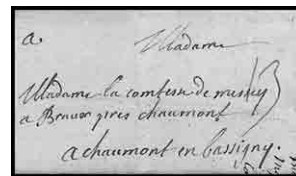 a.
Madame
Madame la comtesse de messey
a Bravor près chaumont
a chaumont en bassigny.